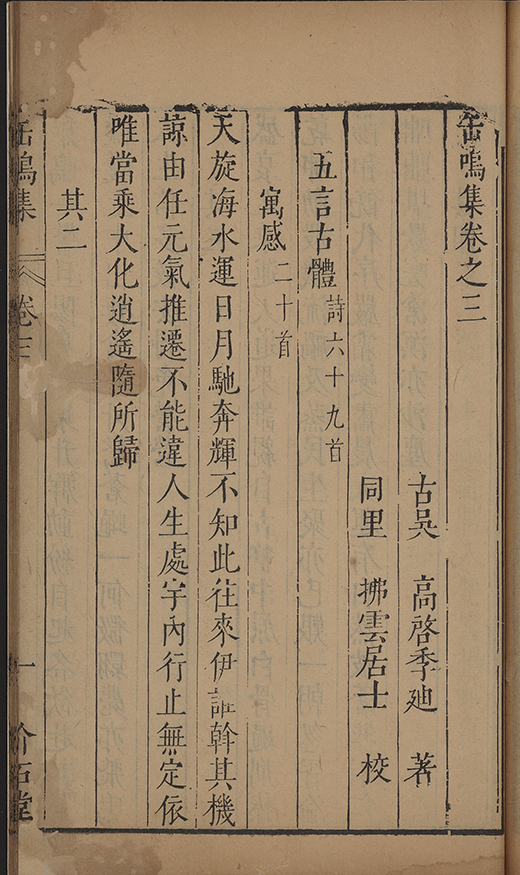 缶鳴集卷之三
古吳 高啓季廸 著
同里 拂雲居士 校
五言古體 詩六十九首
寓感 二十首
天旋海水運日月馳奔輝不知此往來伊誰斡其機
諒由任元氣推遷不能違人生處宇內行止無定依
唯當乘大化逍遙隨所歸
其二
缶鳴集 卷三 一 介石堂